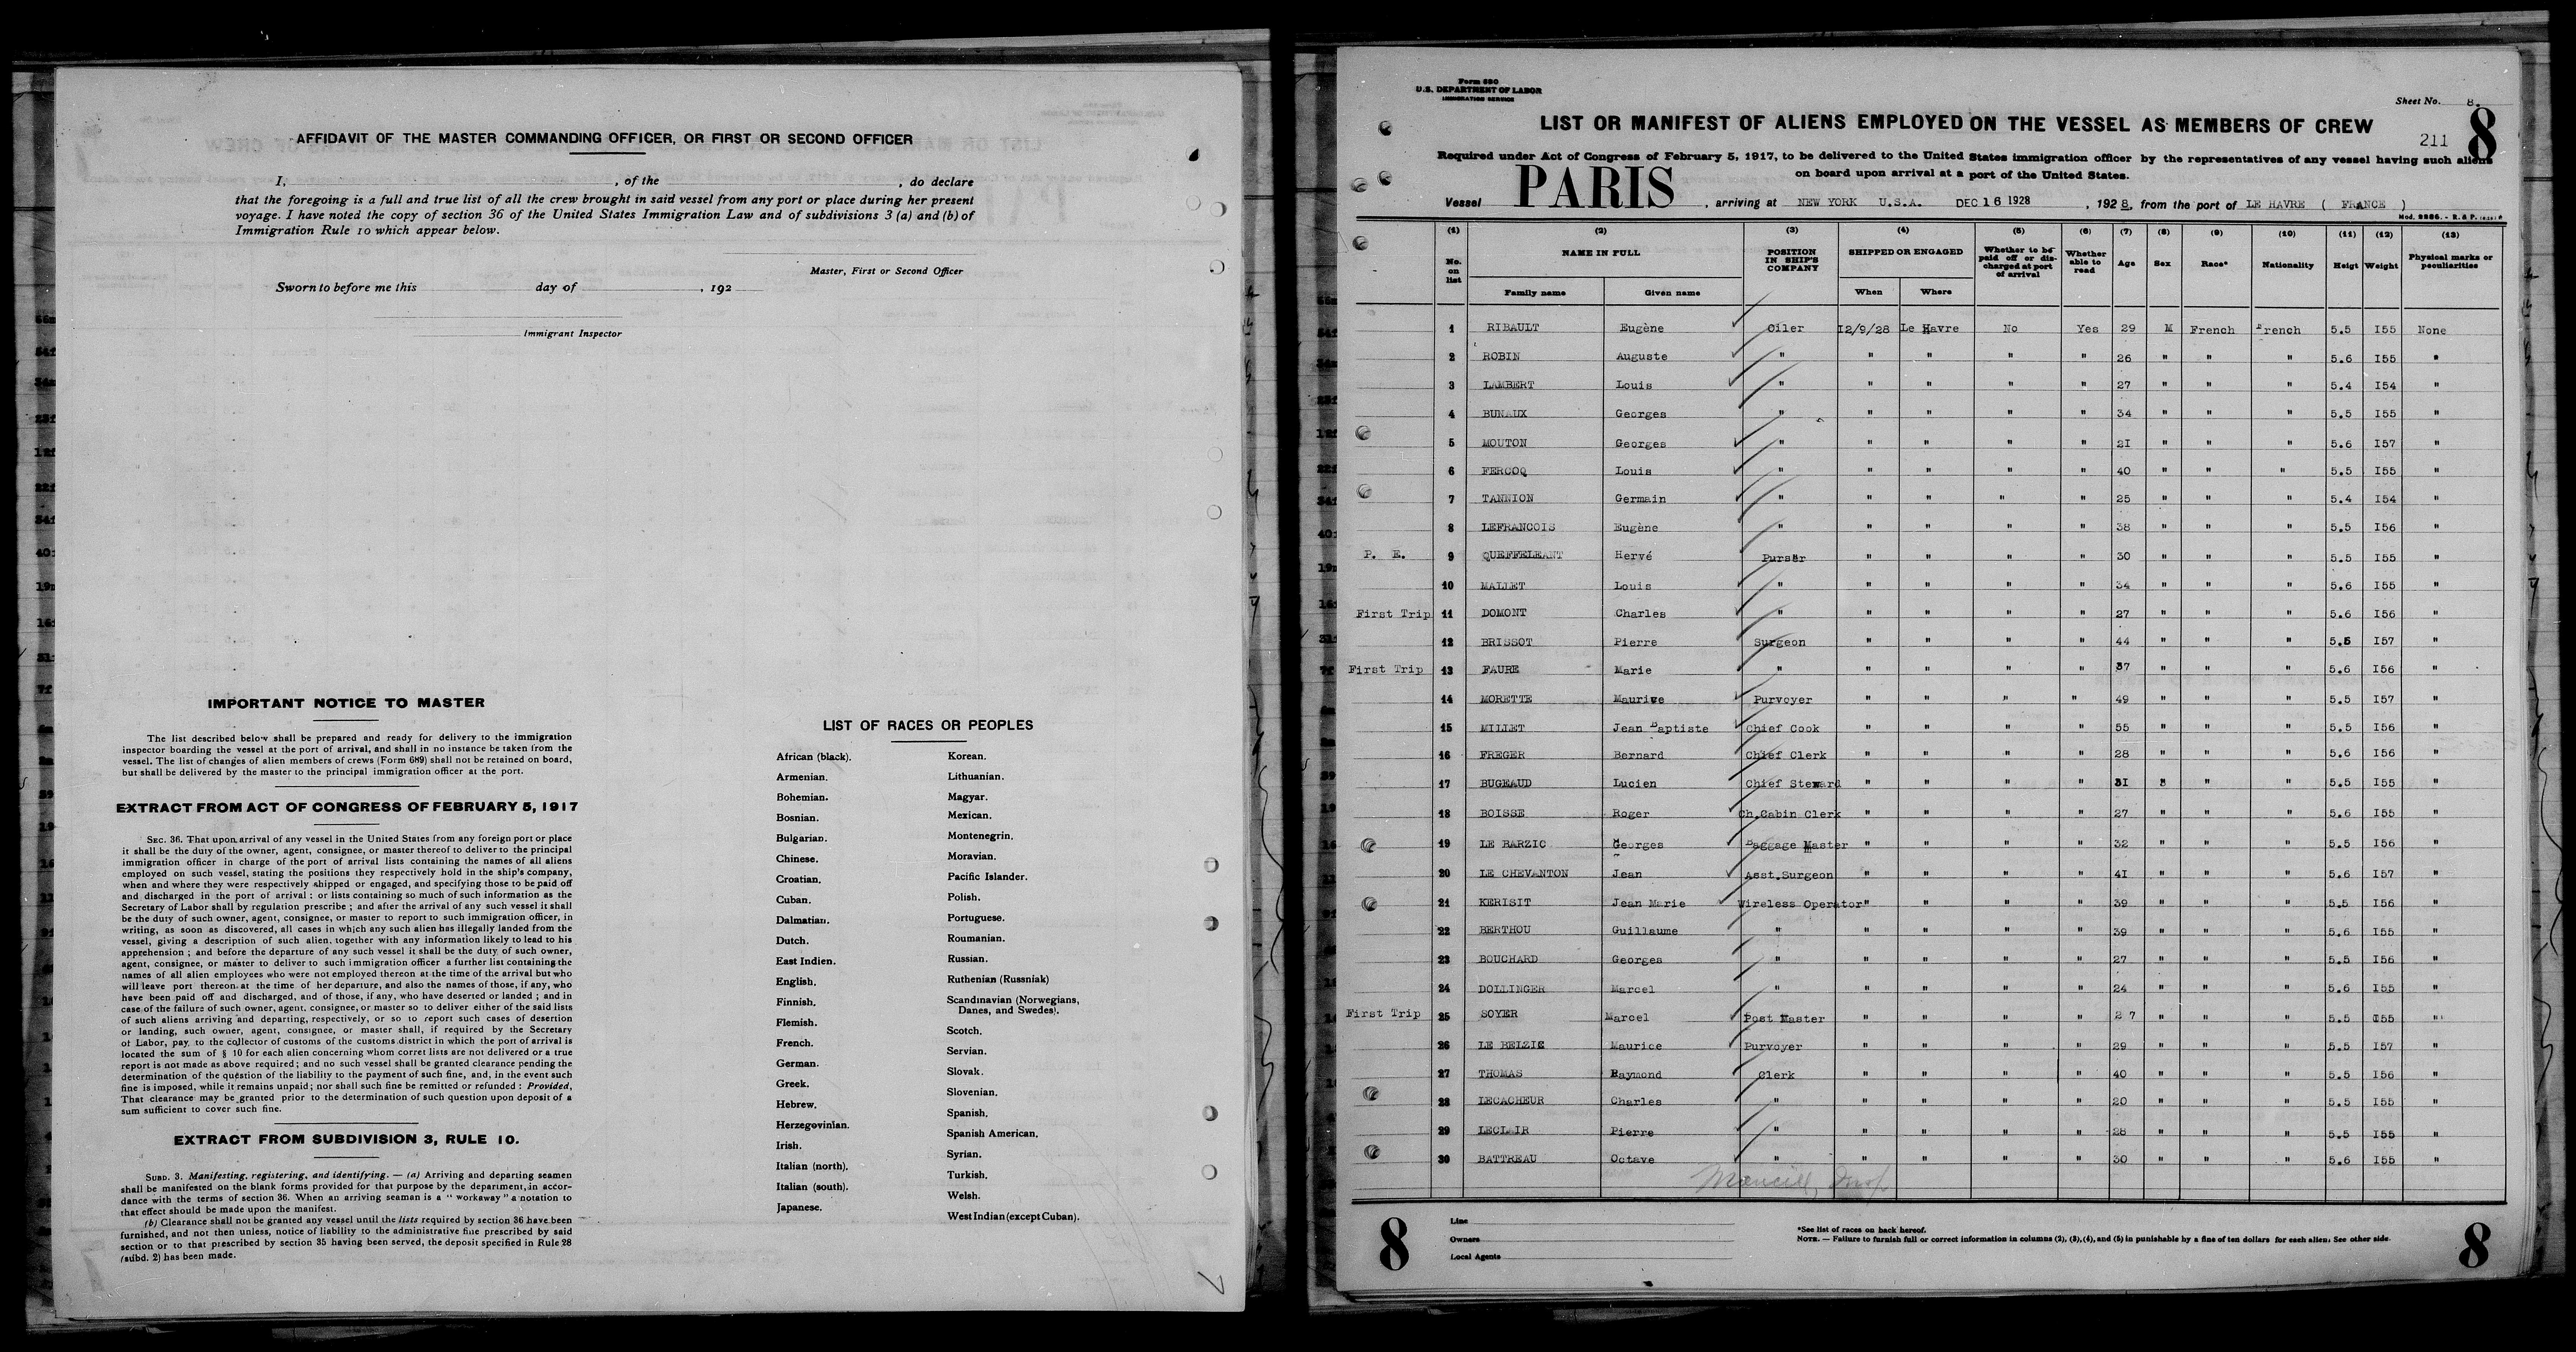 AFFIDAVIT OF THE MASTER COMMANDING OFFICER, OR FIRST OR SECOND OFFICER
I, , of the , do declare
that the foregoing is a full and true list of all the crew brought in said vessel from any port or place during her present
voyage. I have noted the copy of section 36 of the United States Immigration Law and of subdivisions 3 (a) and (b) of
Immigration Rule 10 which appear below.
Master, First or Second Officer
Sworn to before me this day of , 192
Immigrant Inspector
IMPORTANT NOTICE TO MASTER
The list described below shall be prepared and ready for delivery to the immigration
inspector boarding the vessel at the port of arrival, and shall in no instance be taken from the
vessel. The list of changes of alien members of crews (Form 689) shall not be retained on board,
but shall be delivered by the master to the principal immigration officer at the port.
EXTRACT FROM ACT OF CONGRESS OF FEBRUARY 5, 1917
SEC. 36. That upon arrival of any vessel in the United States from any foreign port or place
it shall be the duty of the owner, agent, consignee, or master thereof to deliver to the principal
immigration officer in charge of the port of arrival lists containing the names of all aliens
employed on such vessel, stating the positions they respectively hold in the ship's company,
when and where they were respectively shipped or engaged, and specifying those to be paid off
and discharged in the port of arrival ; or lists containing so much of such information as the
Secretary of Labor shall by regulation prescribe ; and after the arrival of any such vessel it shall
be the duty of such owner, agent, consignee, or master to report to such immigration officer, in
writing, as soon as discovered, all cases in which any such alien has illegally landed from the
vessel, giving a description of such alien, together with any information likely to lead to his
apprehension ; and before the departure of any such vessel it shall be the duty of such owner,
agent, consignee, or master to deliver to such immigration officer a further list containing the
names of all alien employees who were not employed thereon at the time of the arrival but who
will leave port thereon at the time of her departure, and also the names of those, if any, who
have been paid off and discharged, and of those, if any, who have deserted or landed ; and in
case of the failure of such owner, agent, consignee, or master so to deliver either of the said lists
of such aliens arriving and departing, respectively, or so to report such cases of desertion
or landing, such owner, agent, consignee, or master shall, if required by the Secretary
of Labor, pay to the collector of customs of the customs district in which the port of arrival is
located the sum of $ 10 for each alien concerning whom corret lists are not delivered or a true
report is not made as above required ; and no such vessel shall be granted clearance pending the
determination of the question of the liability to the payment of such fine, and, in the event such
fine is imposed, while it remains unpaid ; nor shall such fine be remitted or refunded : Provided,
That clearance may be granted prior to the determination of such question upon deposit of a
sum sufficient to cover such fine.
EXTRACT FROM SUBDIVISION 3, RULE 10.
SUBD. 3. Manifesting, registering, and identifying. — (a) Arriving and departing seamen
shall be manifested on the blank forms provided for that purpose by the department, in accor-
dance with the terms of section 36. When an arriving seaman is a " workaway " a notation to
that effect should be made upon the manifest.
(b) Clearance shall not be granted any vessel until the lists required by section 36 have been
furnished, and not then unless, notice of liability to the administrative fine prescribed by said
section or to that prescribed by section 35 having been served, the deposit specified in Rule 28
(subd. 2) has been made.
LIST OF RACES OR PEOPLES
African (black).
Armenian.
Bohemian.
Bosnian.
Bulgarian.
Chinese.
Croatian.
Cuban.
Dalmatian.
Dutch.
East Indien.
English.
Finnish.
Flemish.
French.
German.
Greek.
Hebrew.
Herzegovinian.
Irish.
Italian (north).
Italian (south).
Japanese.
Korean.
Lithuanian.
Magyar.
Mexican.
Montenegrin.
Moravian.
Pacific Islander.
Polish.
Portuguese.
Roumanian.
Russian.
Ruthenian (Russniak)
Scandinavian (Norwegians,
Danes, and Swedes).
Scotch.
Servian.
Slovak.
Slovenian.
Spanish.
Spanish American.
Syrian.
Turkish.
Welsh.
West Indian (except Cuban).
7
Form 680
U.S. DEPARTMENT OF LABOR
IMMIGRATION SERVICE
Sheet No. 8.
LIST OR MANIFEST OF ALIENS EMPLOYED ON THE VESSEL AS MEMBERS OF CREW
211 8
Required under Act of Congress of February 5, 1917, to be delivered to the United States immigration officer by the representatives of any vessel having such aliens
on board upon arrival at a port of the United States.
Vessel PARIS , arriving at NEW YORK U.S.A. DEC 16 1928 , 1928, from the port of LE HAVRE ( FRANCE )
(1) (2) (3) (4) (5) (6) (7) (8) (9) (10) (11) (12) (13)
No. on list NAME IN FULL POSITION IN SHIP'S COMPANY SHIPPED OR ENGAGED Whether to be paid off or discharged at port of arrival Whether able to read Age Sex Race* Nationality Heigt Weight Physical marks or peculiarities
Family name Given name When Where
1 RIBAULT Eugène Oiler 12/9/28 Le Havre No Yes 29 M French French 5.5 I55 None
2 ROBIN Auguste " " " " " 26 " " " 5.6 I55 "
3 LAMBERT Louis " " " " " 27 " " " 5.4 I54 "
4 BUNAUX Georges " " " " " 34 " " " 5.5 I55 "
5 MOUTON Georges " " " " " 2I " " " 5.6 I57 "
6 FERCOQ Louis " " " " " 40 " " " 5.5 I55 "
7 TANNION Germain " " " " " 25 " " " 5.4 I54 "
8 LEFRANCOIS Eugène " " " " " 38 " " " 5.5 I56 "
P. E. 9 QUEFFELEANT Hervé Purser " " " " 30 " " " 5.5 I55 "
10 MALLET Louis " " " " " 34 " " " 5.6 I55 "
First Trip 11 DOMONT Charles " " " " " 27 " " " 5.6 I56 "
12 BRISSOT Pierre Surgeon " " " " 44 " " " 5.5 I57 "
First Trip 13 FAURE Marie " " " " " 37 " " " 5.6 I56 "
14 MORETTE Maurice Purvoyer " " " " 49 " " " 5.5 I57 "
15 MILLET Jean Baptiste Chief Cook " " " " 55 " " " 5.5 I56 "
16 FREGER Bernard Chief Clerk " " " " 28 " " " 5.6 I56 "
17 BUGEAUD Lucien Chief Steward " " " " 3I " " " 5.5 I55 "
18 BOISSE Roger Ch.Cabin Clerk " " " " 27 " " " 5.6 I55 "
19 LE BARZIC Georges Baggage Master " " " " 32 " " " 5.5 I56 "
20 LE CHEVANTON Jean Asst.Surgeon " " " " 4I " " " 5.6 I57 "
21 KERISIT Jean Marie Wireless Operator " " " " 39 " " " 5.5 I56 "
22 BERTHOU Guillaume " " " " " 39 " " " 5.6 I55 "
23 BOUCHARD Georges " " " " " 27 " " " 5.5 I56 "
24 DOLLINGER Marcel " " " " " 24 " " " 5.6 I55 "
First Trip 25 SOYER Marcel Post Master " " " " 27 " " " 5.5 I55 "
26 LE BEIZIC Maurice Purvoyer " " " " 29 " " " 5.5 I57 "
27 THOMAS Raymond Clerk " " " " 40 " " " 5.5 I56 "
28 LECACHEUR Charles " " " " " 20 " " " 5.5 I55 "
29 LECLAIR Pierre " " " " " 28 " " " 5.5 I55 "
30 BATTREAU Octave " " " " " 30 " " " 5.6 I55 "
8
Line
Owners
Local Agents
*See list of races on back hereof.
NOTE. — Failure to furnish full or correct information in columns (2), (3), (4), and (5) in punishable by a fine of ten dollars for each alien. See other side.
8